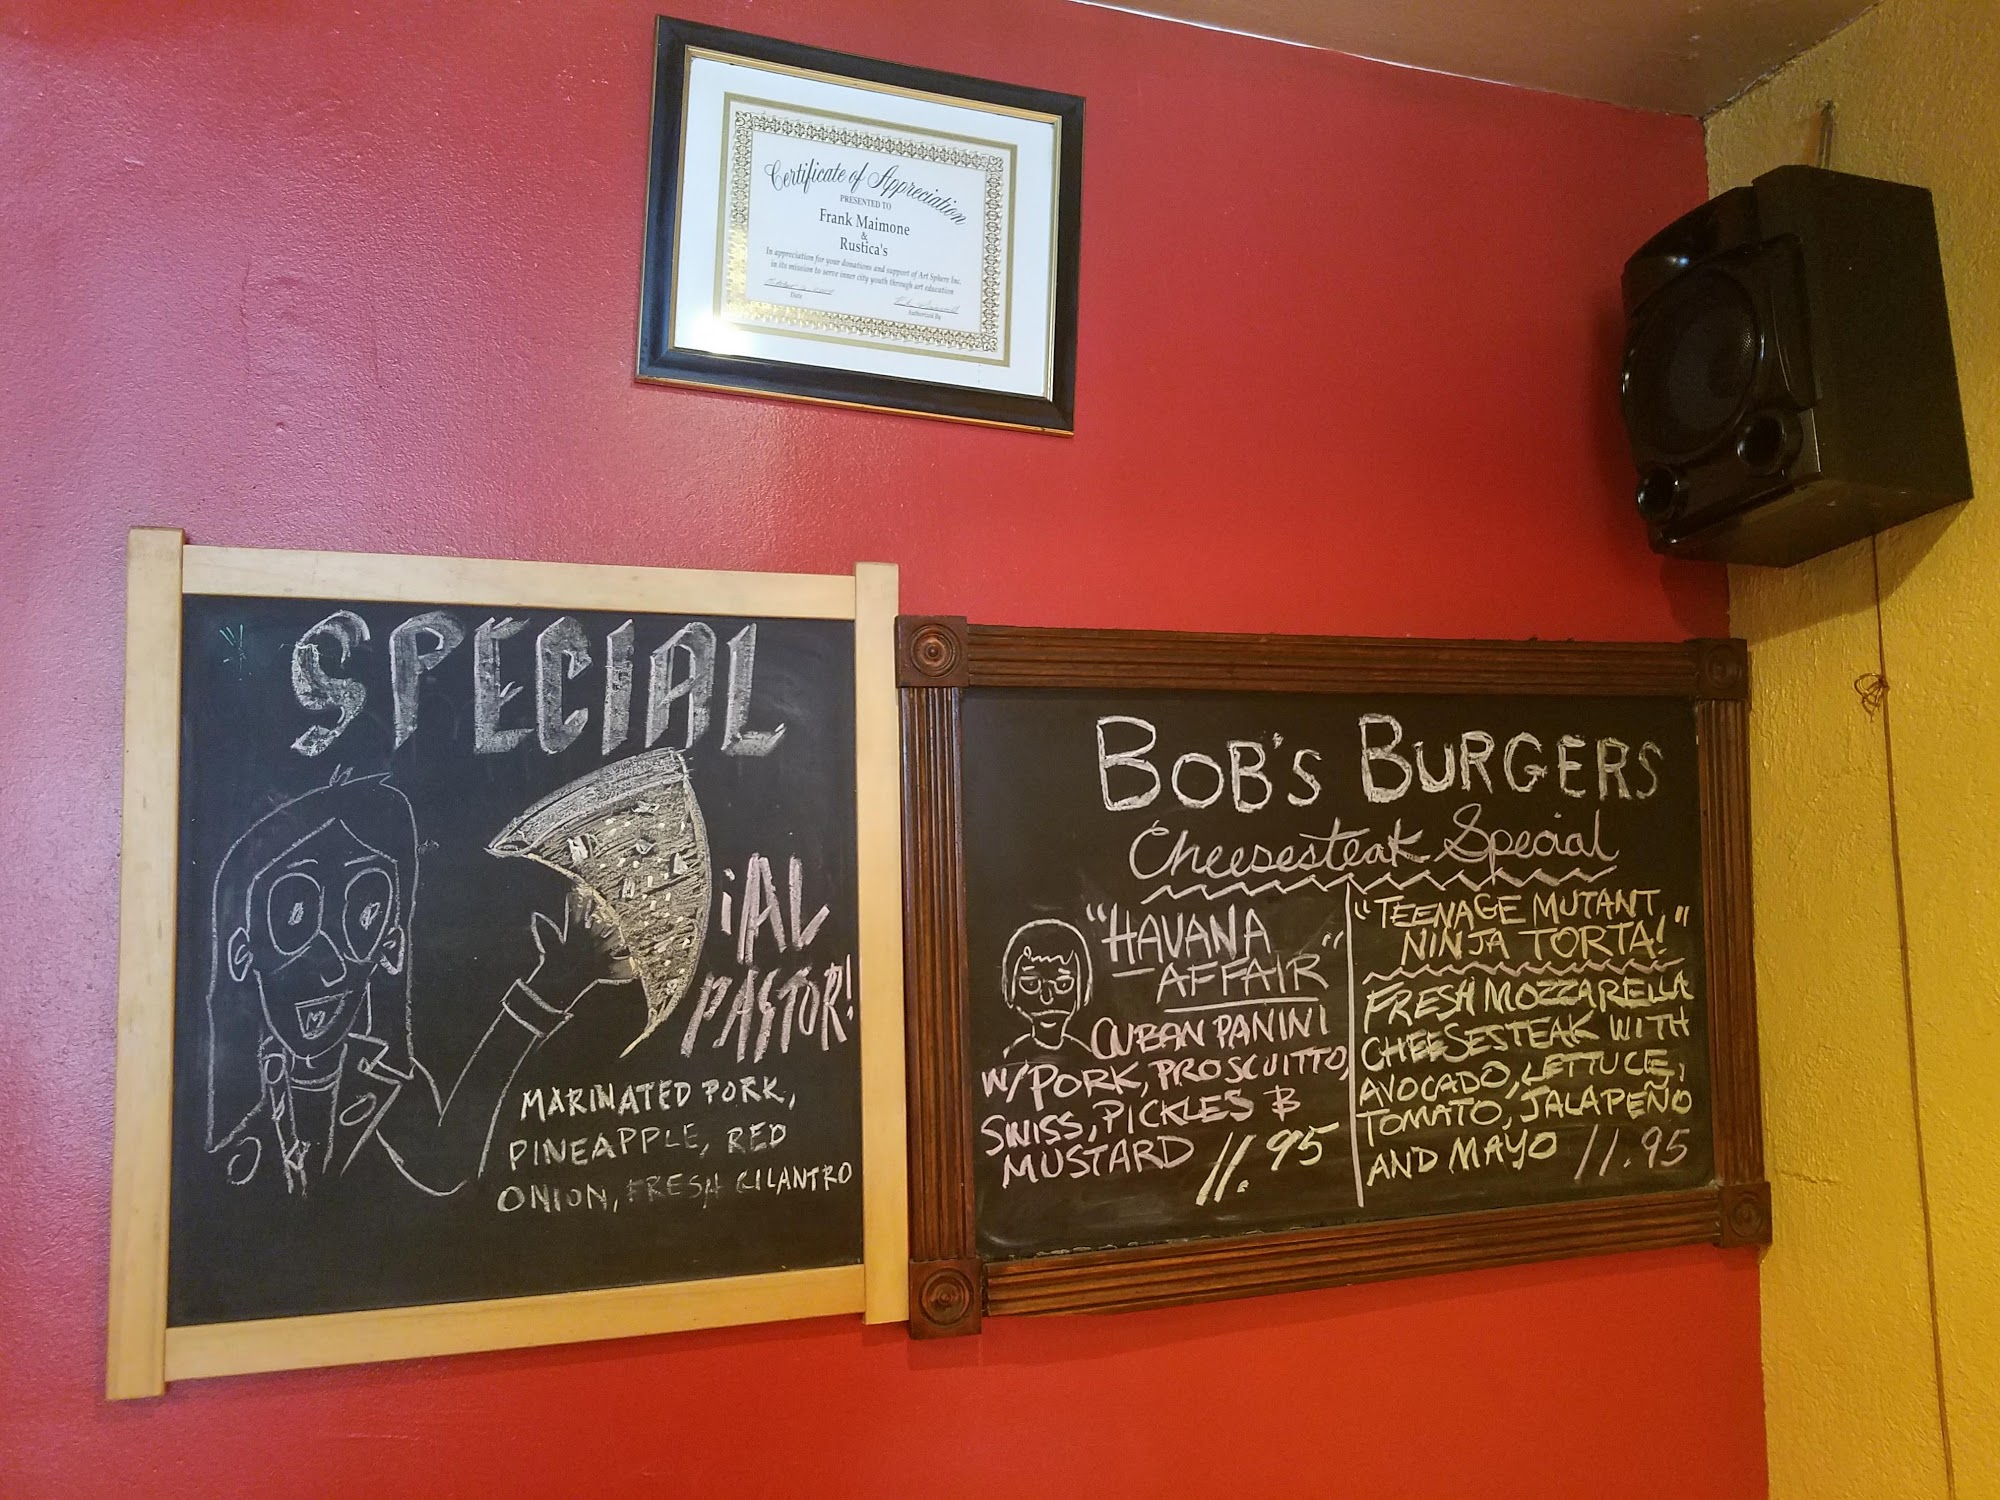 Certificate of Appreciation
PRESENTED TO
Frank Maimone
&
Rustica's
In appreciation for your donations and support of Art Sphere Inc.
in its mission to serve inner city youth through art education
Date
Authorized By
SPECIAL
¡AL
PASTOR!
MARINATED PORK,
PINEAPPLE, RED
ONION, FRESH CILANTRO
BOB'S BURGERS
Cheesesteak Special
"HAVANA
AFFAIR"
CUBAN PANINI
W/ PORK, PROSCUITTO,
SWISS, PICKLES &
MUSTARD 11.95
"TEENAGE MUTANT
NINJA TORTA!"
FRESH MOZZARELLA
CHEESESTEAK WITH
AVOCADO, LETTUCE,
TOMATO, JALAPEÑO
AND MAYO 11.95